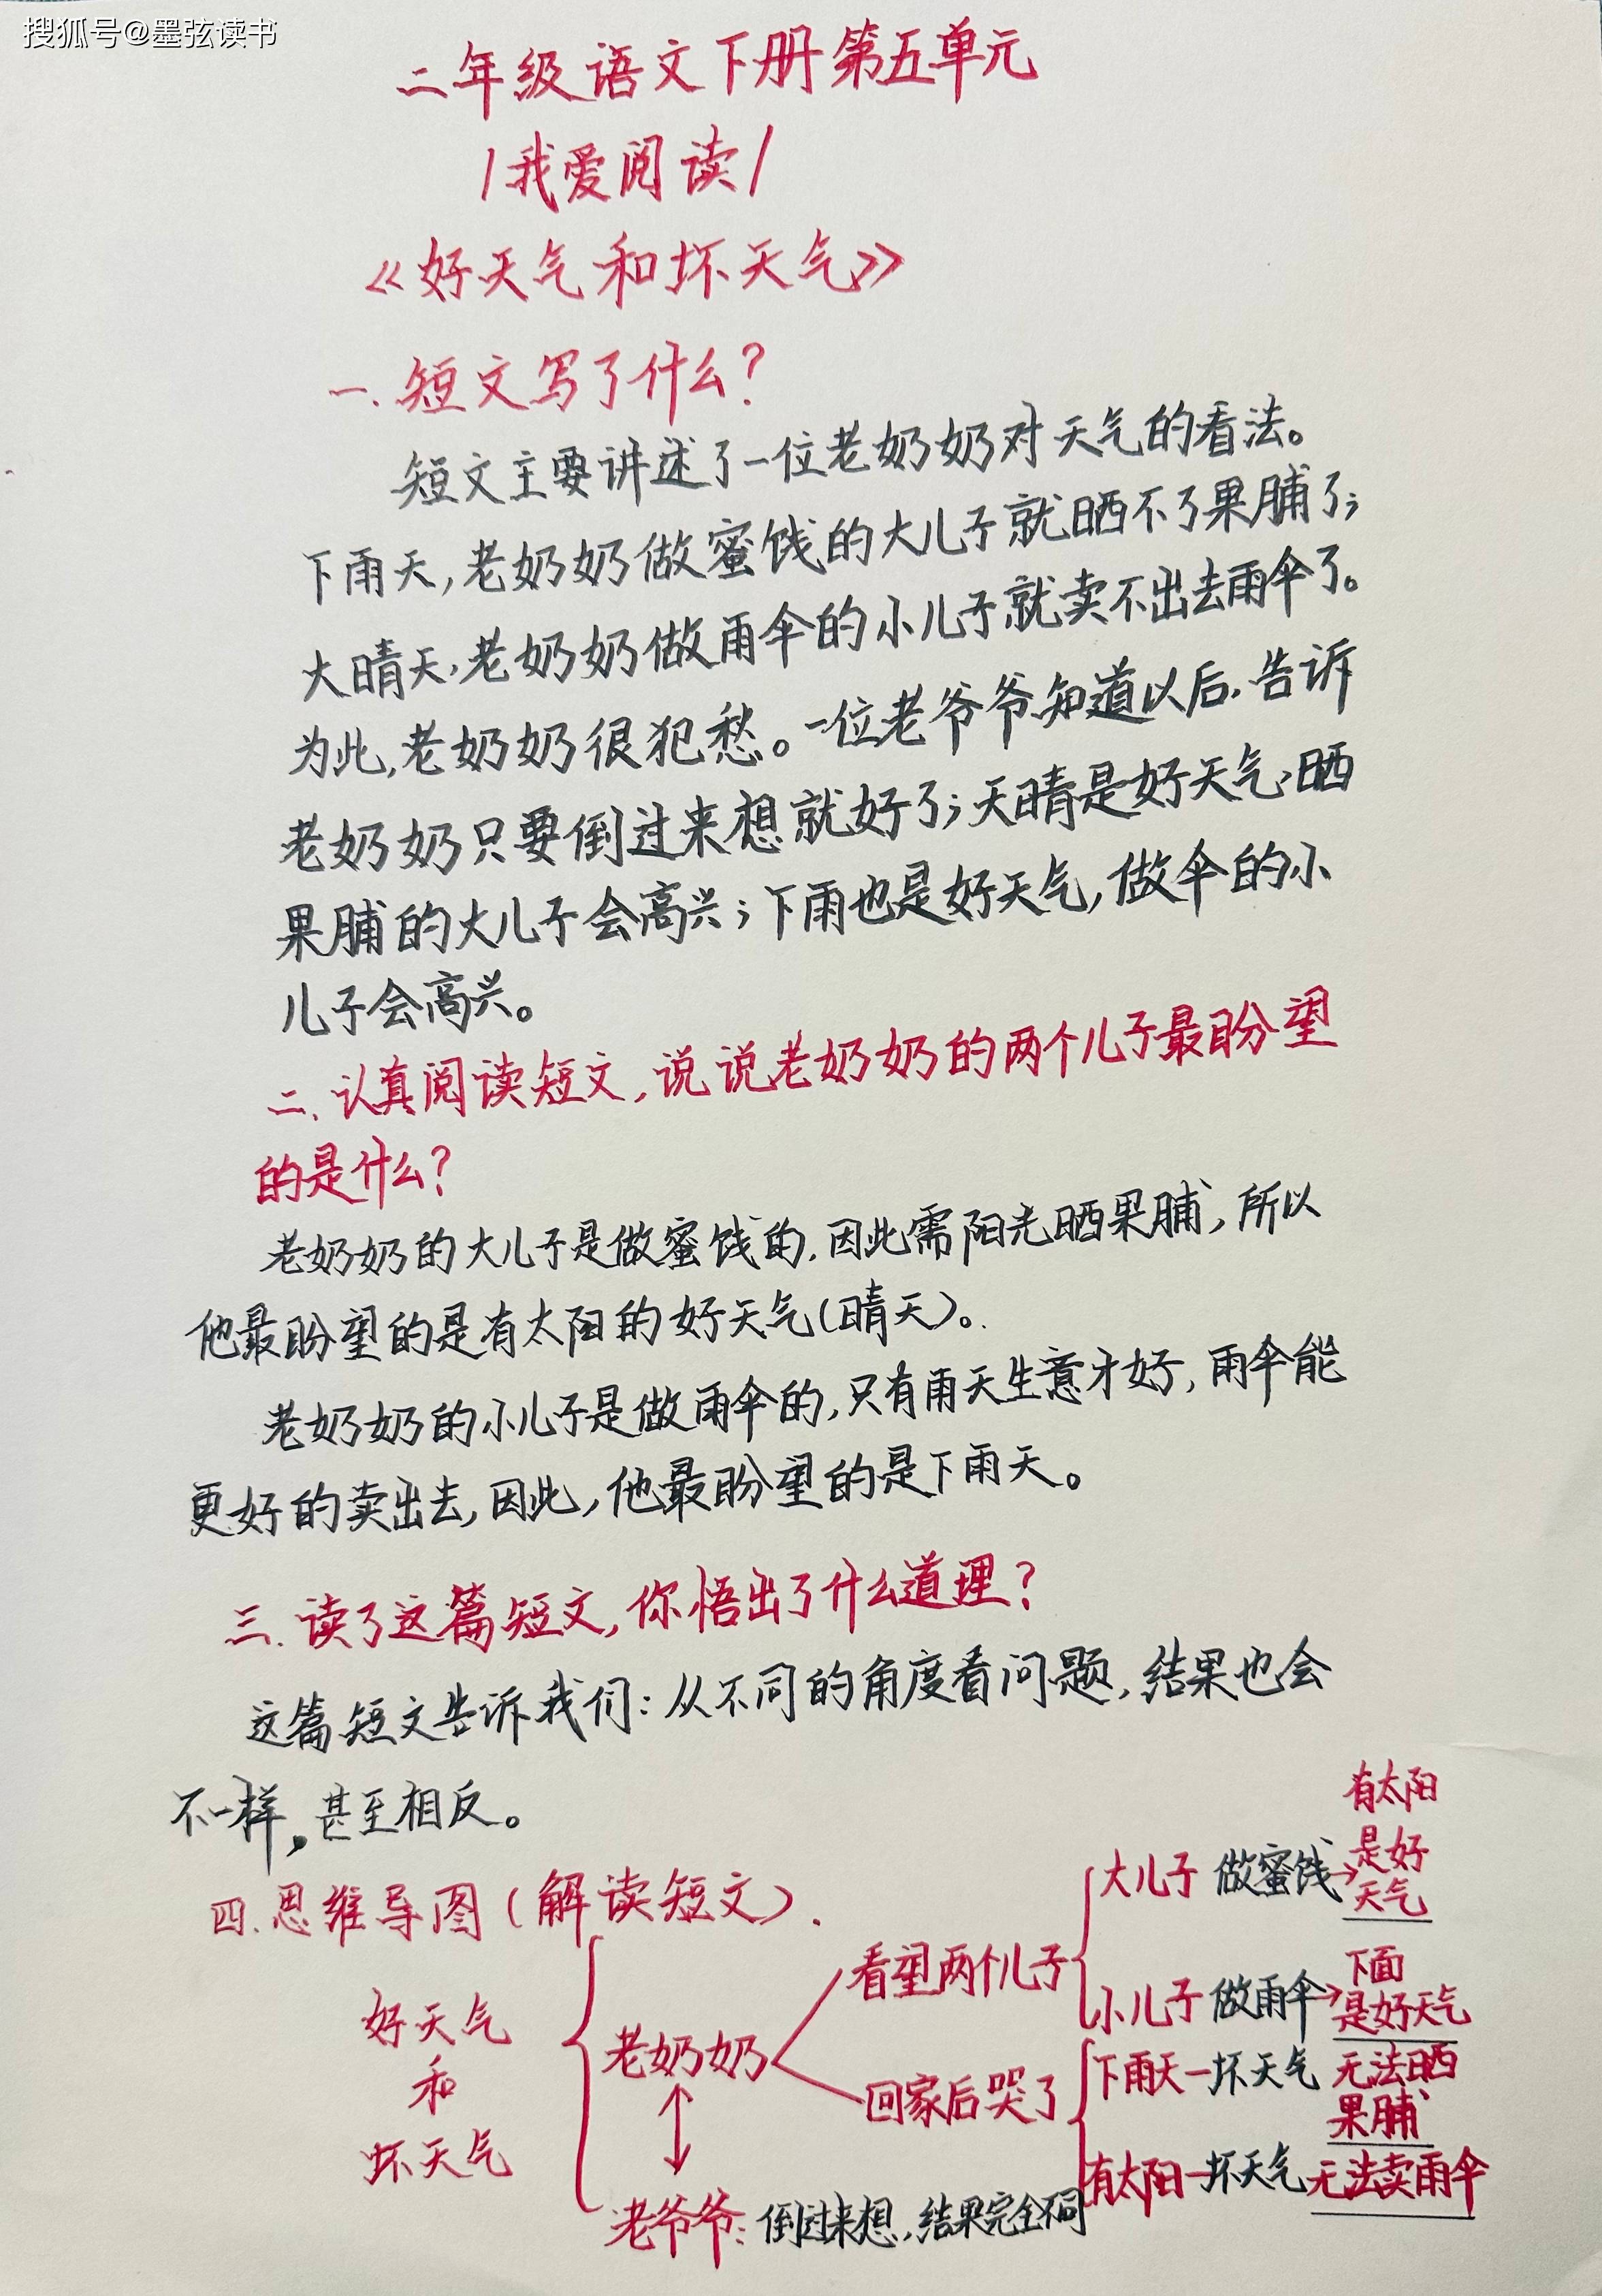 搜狐号@墨弦读书
二年级语文下册第五单元
/我爱阅读/
《好天气和坏天气》
一.短文写了什么?
短文主要讲述了一位老奶奶对天气的看法。
下雨天,老奶奶做蜜饯的大儿子就晒不了果脯了;
大晴天,老奶奶做雨伞的小儿子就卖不出去雨伞了。
为此,老奶奶很犯愁。一位老爷爷知道以后,告诉
老奶奶只要倒过来想就好了;天晴是好天气,晒
果脯的大儿子会高兴;下雨也是好天气,做伞的小
儿子会高兴。
二、认真阅读短文,说说老奶奶的两个儿子最盼望
的是什么?
老奶奶的大儿子是做蜜饯的,因此需阳光晒果脯,所以
他最盼望的是有太阳的好天气(晴天)。
老奶奶的小儿子是做雨伞的,只有雨天生意才好,雨伞能
更好的卖出去,因此,他最盼望的是下雨天。
三.读了这篇短文,你悟出了什么道理?
这篇短文告诉我们:从不同的角度看问题,结果也会
不一样,甚至相反。
四.思维导图(解读短文).
好天气
和
坏天气
老奶奶
看望两个儿子
大儿子 做蜜饯→
有太阳
是好
天气
小儿子 做雨伞→
下面
是好天气
回家后哭了
下雨天一坏天气 无法晒
果脯
有太阳一坏天气 无法卖雨伞
老爷爷:倒过来想,结果完全不同